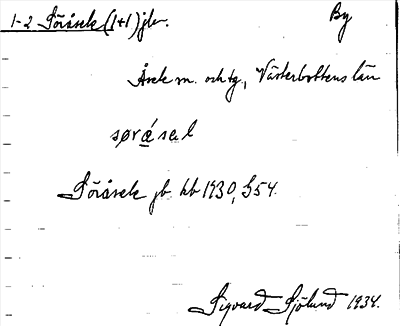 1-2 Söråsele (1+1) jbr. By
Åsele sn. och tg., Västerbottens län
sørásal
Söråsele jb. kb 1930, § 54.
Sigvard Sjölund 1934.